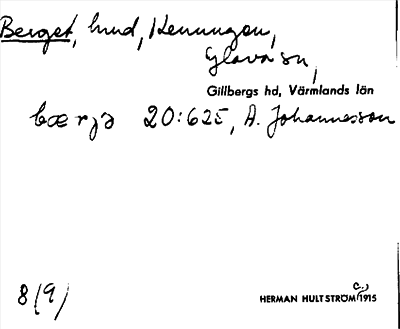 Berget, hmd, Kenungen,
Glava sn,
Gillbergs hd, Värmlands län
bærjə 20:625, A. Johannesson
8(9)
HERMAN HULTSTRÖM C:) 1915